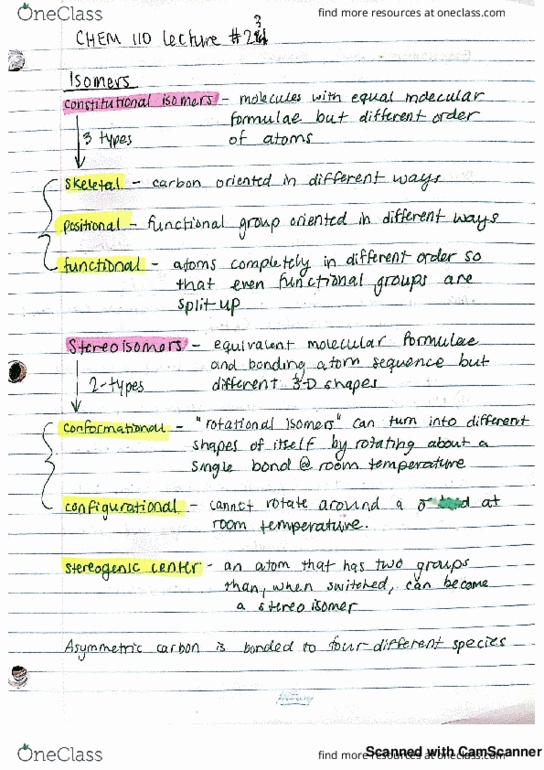 OneClass
find more resources at oneclass.com
CHEM 110 lecture #23
Isomers
constitutional isomers - molecules with equal molecular
formulae but different order
of atoms
3 types
skeletal - carbon oriented in different ways
positional - functional group oriented in different ways
functional - atoms completely in different order so
that even functional groups are
split up
Stereoisomers - equivalent molecular formulae
and bonding atom sequence but
different 3-D shapes
2-types
conformational - "rotational isomers" can turn into different
shapes of itself by rotating about a
single bond @ room temperature
configurational - cannot rotate around a σ at
room temperature.
stereogenic center - an atom that has two groups
than, when switched, can become
a stereoisomer
Asymmetric carbon is bonded to four different species
OneClass
find more resources at oneclass.com
Scanned with CamScanner